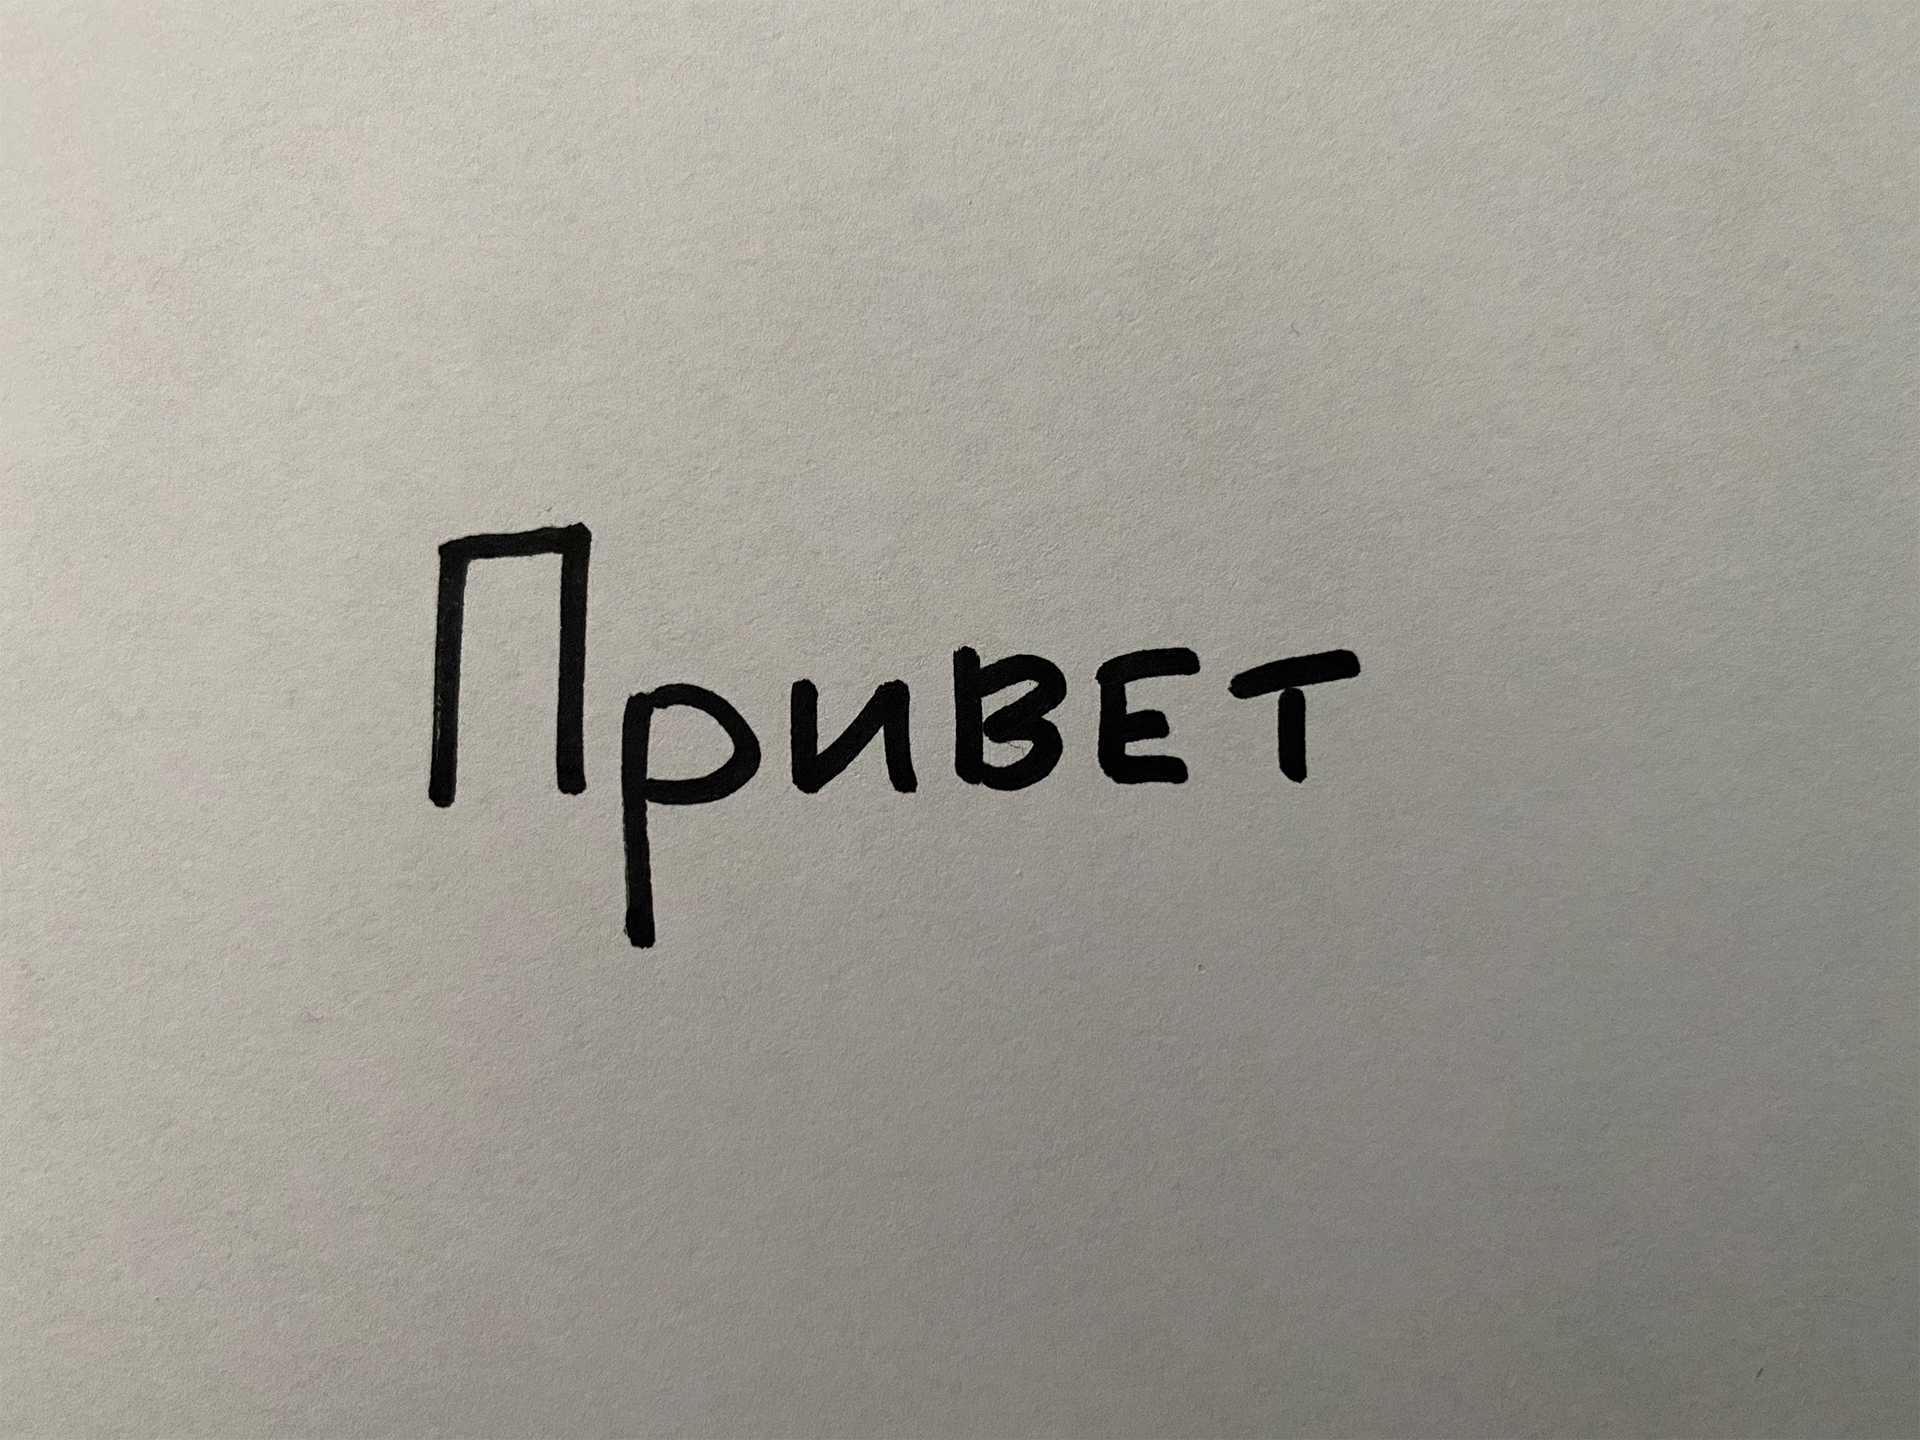 Привет